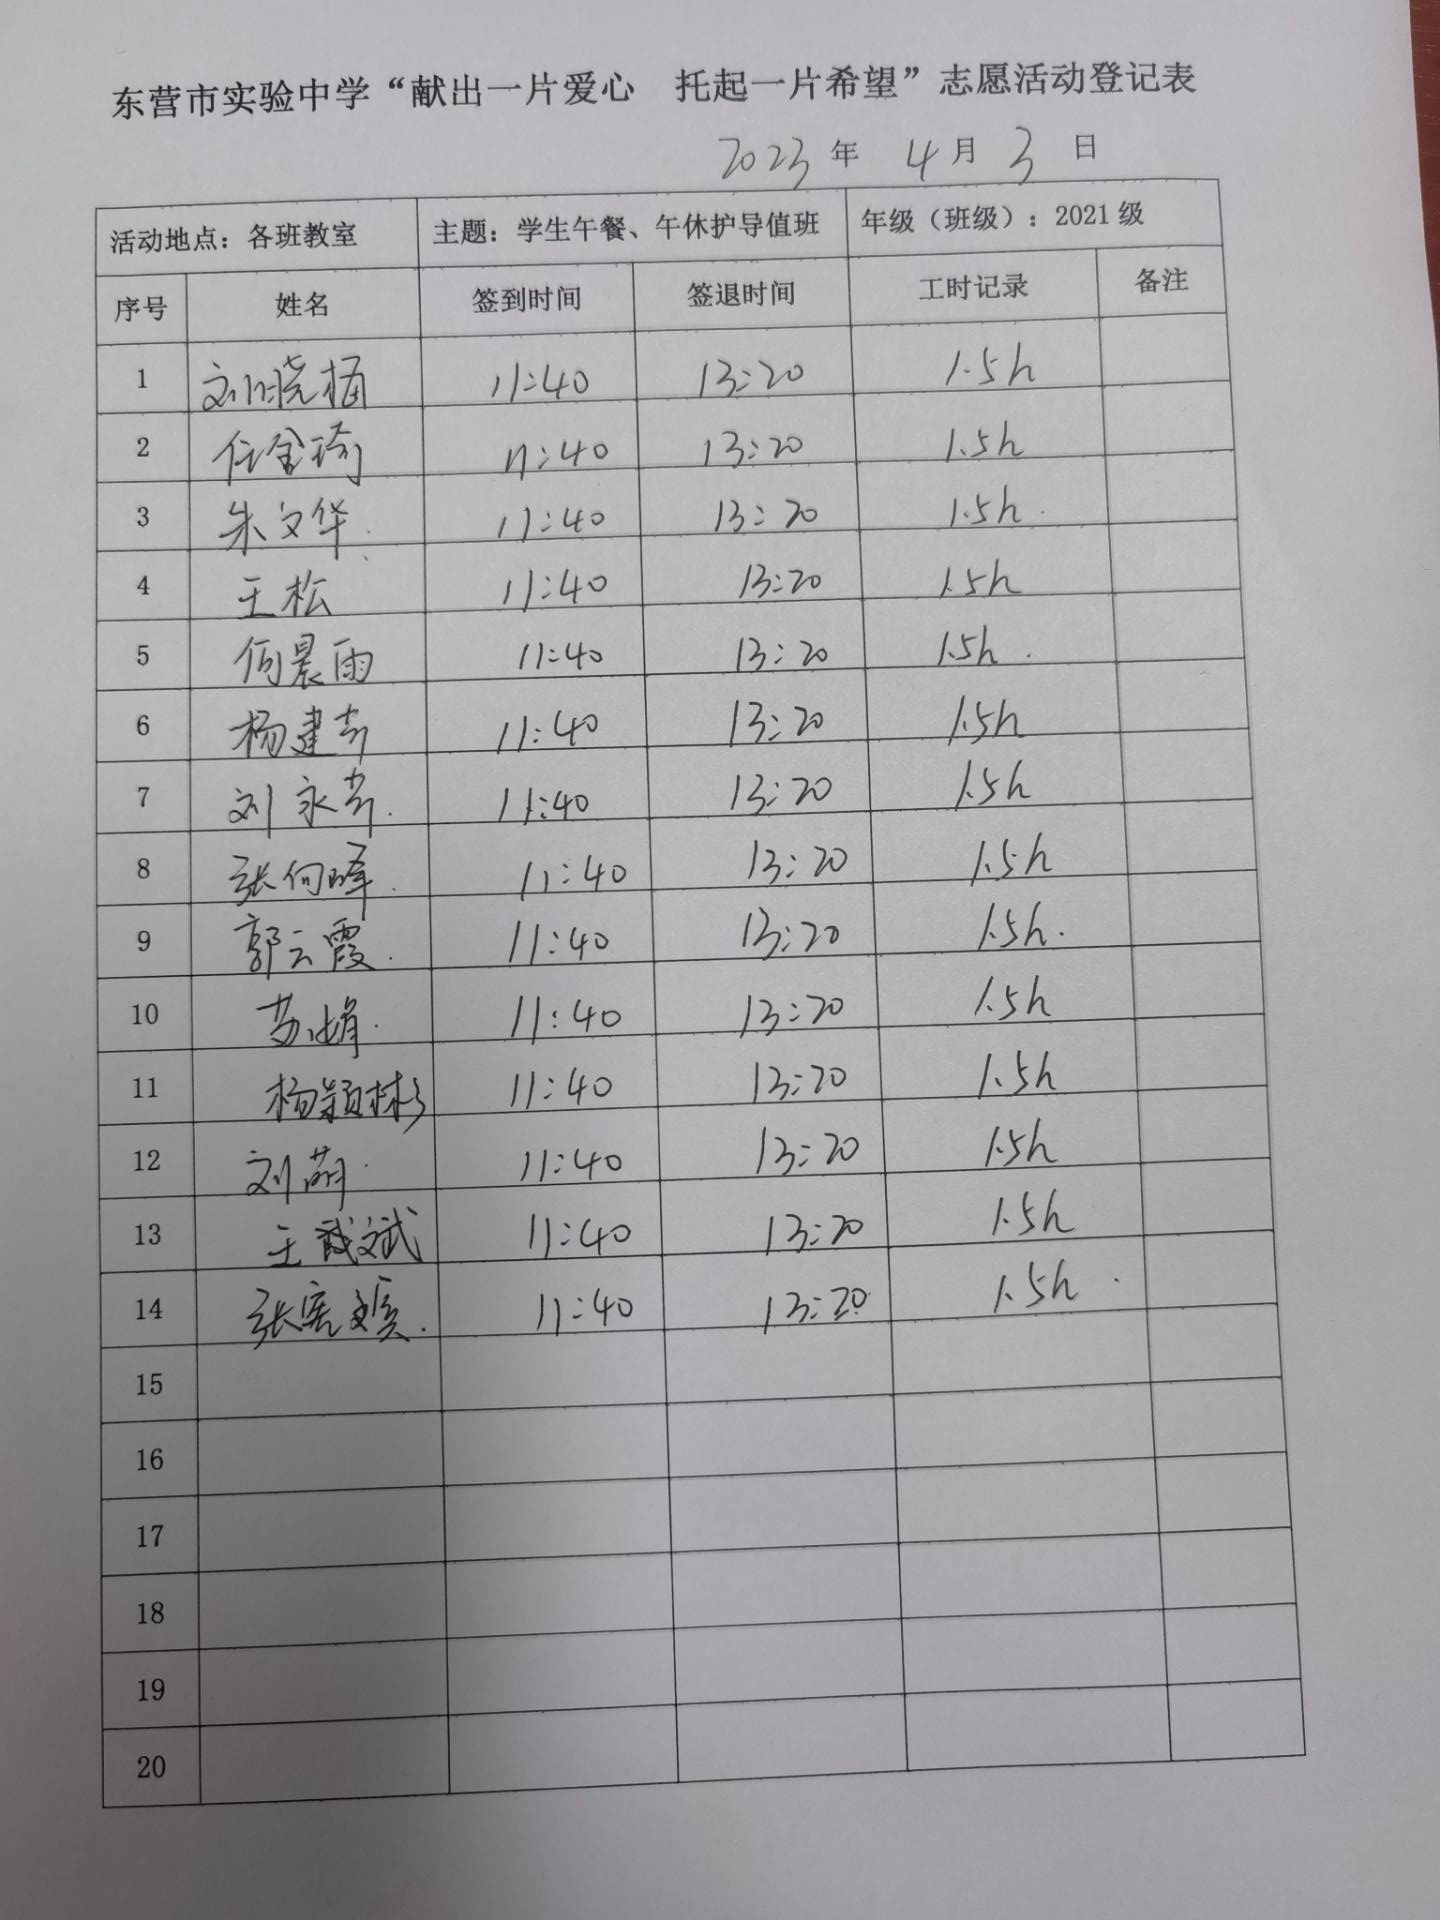 东营市实验中学“献出一片爱心 托起一片希望”志愿活动登记表
2023 年 4 月 3 日
活动地点：各班教室 主题：学生午餐、午休护导值班 年级（班级）：2021 级
序号 姓名 签到时间 签退时间 工时记录 备注
1 刘晓梅 11:40 13:20 1.5h
2 任金琦 11:40 13:20 1.5h
3 朱文华 11:40 13:20 1.5h
4 王松 11:40 13:20 1.5h
5 何晨雨 11:40 13:20 1.5h
6 杨建芳 11:40 13:20 1.5h
7 刘永芳 11:40 13:20 1.5h
8 张向峰 11:40 13:20 1.5h
9 郭云霞 11:40 13:20 1.5h
10 苏娟 11:40 13:20 1.5h
11 杨颖彬 11:40 13:20 1.5h
12 刘萌 11:40 13:20 1.5h
13 王斌 11:40 13:20 1.5h
14 张 11:40 13:20 1.5h
15
16
17
18
19
20